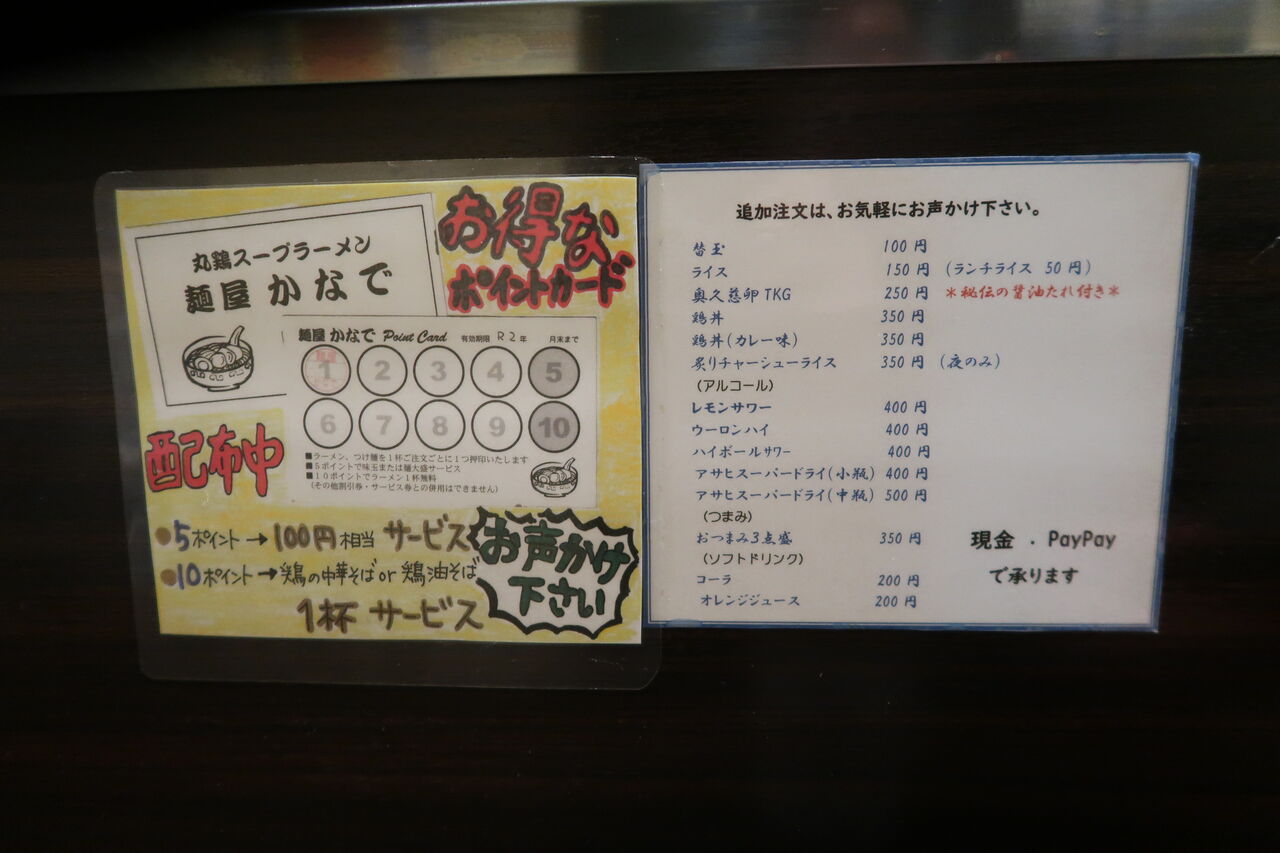 お得な
ポイントカード
丸鶏スープラーメン
麺屋 かなで
麺屋 かなで Point Card 有効期限 R2年 月末まで
1 2 3 4 5
6 7 8 9 10
■ラーメン、つけ麺を1杯ご注文ごとに1つ押印いたします
■5ポイントで味玉または麺大盛サービス
■10ポイントでラーメン1杯無料
(その他割引券・サービス券との併用はできません)
配布中
●5ポイント→100円相当 サービス
●10ポイント→鶏の中華そば or 鶏油そば
1杯 サービス
お声かけ
下さい
追加注文は、お気軽にお声かけ下さい。
替玉 100円
ライス 150円 (ランチライス 50円)
奥久慈卵TKG 250円 *秘伝の醤油たれ付き*
鶏丼 350円
鶏丼(カレー味) 350円
炙りチャーシューライス 350円 (夜のみ)
(アルコール)
レモンサワー 400円
ウーロンハイ 400円
ハイボールサワー 400円
アサヒスーパードライ(小瓶) 400円
アサヒスーパードライ(中瓶) 500円
(つまみ)
おつまみ3点盛 350円
(ソフトドリンク)
コーラ 200円
オレンジジュース 200円
現金 . PayPay
で承ります